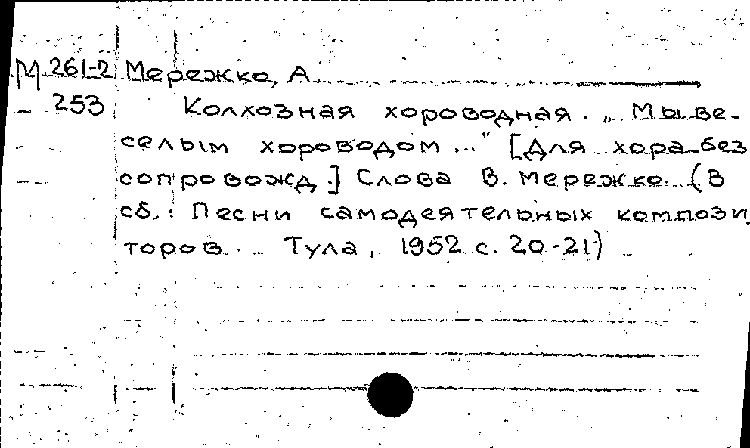 М 261-2 Мережко, А.
253 Колхозная хороводная. „Мы ве-
селым хороводом..." [Для хора без
сопровожд.] Слова В. Мережко. (В
сб.: Песни самодеятельных компози
торов. Тула, 1952 с. 20-21)